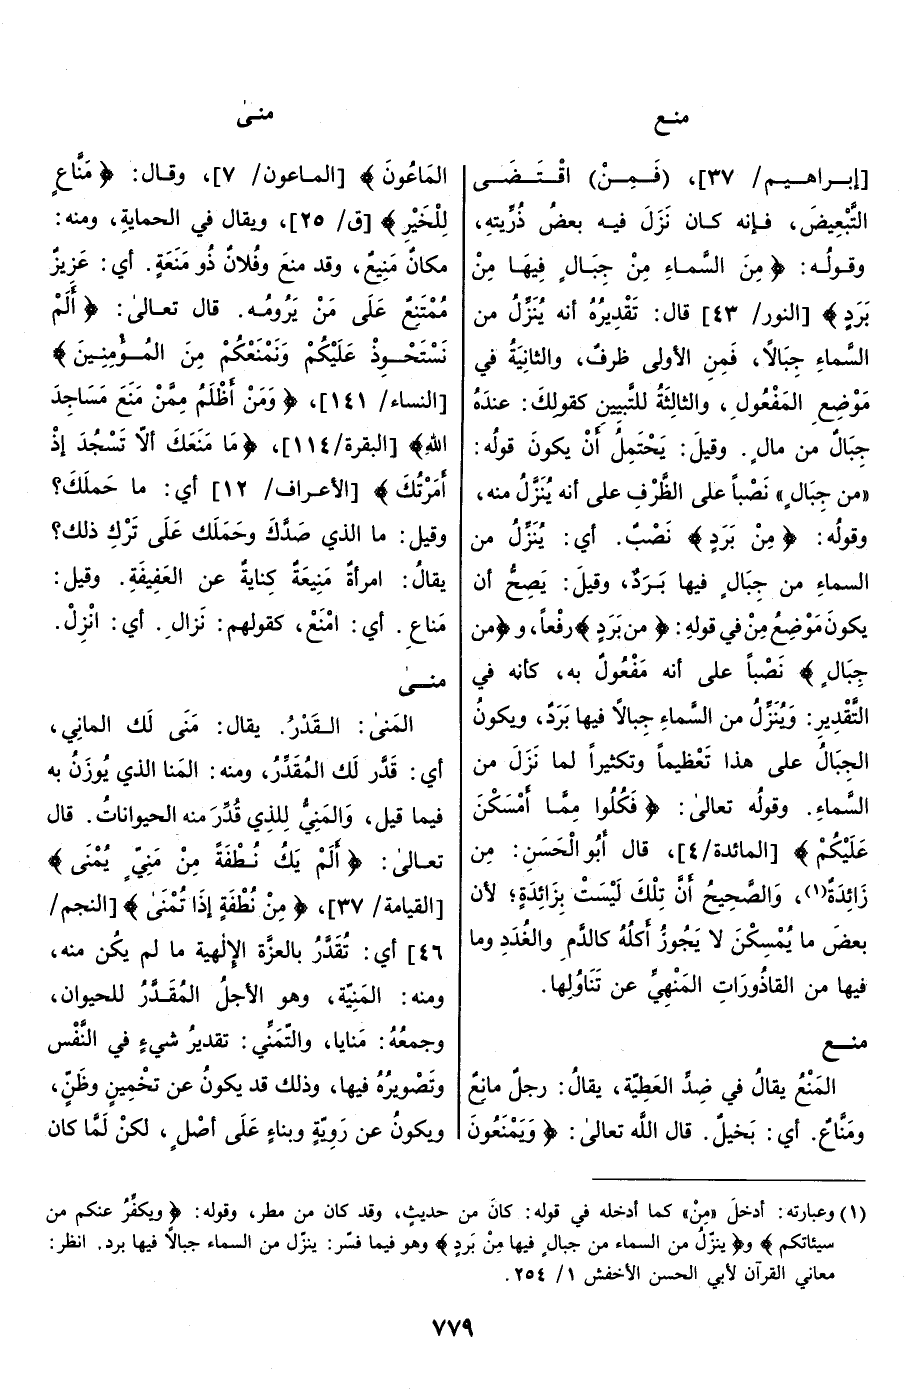 منـع
منـىٰ
[إبـراهـيـم/ ٣٧]، (فَـمِـنْ) اقْـتَـضَـى
التَّبْعِيضَ، فـإنه كـان نَزَلَ فيـه بعضُ ذُرِّيتِهِ،
وقـولُـه: ﴿ مِنَ السَّمـاءِ مِنْ جِبَـالٍ فِيهَـا مِنْ
بَرَدٍ ﴾ [النور/ ٤٣] قال: تَقْديرُهُ أنه يُنَزِّلُ من
السَّماءِ جِبَالًا، فَمِن الأولى ظرفٌ، والثانِيَةُ في
مَوْضِعِ المَفْعُولِ، والثالثَةُ للتَّبيينِ كقولِكَ: عندَهُ
جِبَالٌ من مالٍ. وقيلَ: يَحْتَمِلُ أَنْ يكونَ قولُه:
«من جِبالٍ» نَصْباً على الظَّرْفِ على أنه يُنَزَّلُ منه،
وقولُه: ﴿ مِنْ بَرَدٍ ﴾ نَصْبٌ. أي: يُنَزِّلُ من
السماءِ من جِبَالٍ فيها بَـرَدٌ، وقيلَ: يَصِحُّ أن
يكونَ مَوْضِعُ مِنْ في قولهِ: ﴿ من بَرَدٍ ﴾ رفْعاً، و ﴿ من
جِبَالٍ ﴾ نَصْباً على أنه مَفْعُولٌ به، كأنه في
التَّقْدِيرِ: وَيُنَزِّلُ من السَّماءِ جبالًا فيها بَرَدٌ، ويكونُ
الجِبَالُ على هذا تَعْظيماً وتكثيراً لما نَزَلَ من
السَّماءِ. وقولُه تعالىٰ: ﴿ فَكُلُوا مِمَّا أَمْسَكْنَ
عَلَيْكُمْ ﴾ [المائدة/٤]، قال أَبُو الْحَسَنِ: مِن
زَائِدَةٌ(١)، وَالصَّحِيحُ أَنَّ تِلْكَ لَيْسَتْ بِزَائِدَةٍ؛ لأن
بعضَ ما يُمْسِكْنَ لا يَجُوزُ أَكلُهُ كالدَّمِ والغُدَدِ وما
فيها من القاذُوراتِ المَنْهِيِّ عن تَنَاوُلِها.
منـع
المَنْعُ يقالُ في ضِدِّ العَطِيَّة، يقالُ: رجلٌ مانِعٌ
ومَنَّاعٌ. أي: بَخيلٌ. قال اللَّه تعالىٰ: ﴿ وَيَمْنَعُونَ
المَاعُونَ ﴾ [المـاعون/ ٧]، وقـال: ﴿ مَنَّاعٍ
لِلْخَيْرِ ﴾ [ق/ ٢٥]، ويقال في الحمايةِ، ومنه:
مكانٌ مَنِيعٌ، وقد منعَ وفُلانٌ ذُو مَنَعَةٍ. أي: عَزِيزٌ
مُمْتَنِعٌ عَلَى مَنْ يَرُومُـه. قال تعـالىٰ: ﴿ أَلَمْ
نَسْتَحْـوِذْ عَلَيْكُمْ وَنَمْنَعْكُمْ مِنَ المُـؤْمِنِـينَ ﴾
[النساء/ ١٤١]، ﴿ وَمَنْ أَظْلَمُ مِمَّنْ مَنَعَ مَسَاجِدَ
اللهِ﴾ [البقرة/١١٤]، ﴿مَا مَنَعَكَ أَلاّ تَسْجُدَ إِذْ
أَمَرْتُكَ ﴾ [الأعـراف/ ١٢] أي: ما حَملَكَ؟
وقيل: ما الذي صَدَّكَ وحَمَلَك عَلَى تَرْكِ ذلك؟
يقالُ: امرأةٌ مَنِيعَةٌ كِنايةٌ عن العَفِيفَةِ. وقيل:
مَناعِ. أي: امْنَعْ، كقولهم: نَزالِ. أي: انْزِلْ.
منــىٰ
المَنىٰ: القَدْرُ. يقال: مَنَى لَك الماني،
أي: قَدَّر لَك المُقَدِّرُ، ومنه: المَنا الذي يُوزَنُ به
فيما قيل، وَالمَنِيُّ لِلذي قُدِّرَ منه الحيواناتُ. قال
تعـالىٰ: ﴿ أَلَمْ يَكُ نُـطْفَةً مِنْ مَنِيٍّ يُمْنَى ﴾
[القيامة/ ٣٧]، ﴿ مِنْ نُطْفَةٍ إِذَا تُمْنَىٰ ﴾ [النجم/
٤٦] أي: تُقَدَّرُ بالعزَّة الإِلٰهية ما لم يكُن منه،
ومنه: المَنِيَّة، وهو الأجلُ المُقَدَّرُ للحيوان،
وجمعُهُ: مَنايا، والتَّمَنِّي: تقديرُ شيءٍ في النَّفْس
وتَصْويرُهُ فيها، وذلك قد يكونُ عن تخْمِينٍ وظَنٍّ،
ويكونُ عن رَوِيّةٍ وبناءٍ عَلَى أصْلٍ، لكنْ لَمَّا كان
(١) وعبارته: أدخلَ «مِنْ» كما أدخله في قوله: كانَ من حديثٍ، وقد كان من مطر، وقوله: ﴿ ويكفِّرُ عنكم من
سيئاتكم ﴾ و﴿ ينزّلُ من السماء من جبالٍ فيها مِنْ بَردٍ ﴾ وهو فيما فسّر: ينزّل من السماء جبالًا فيها برد. انظر:
معاني القرآن لأبي الحسن الأخفش ١/ ٢٥٤.
٧٧٩